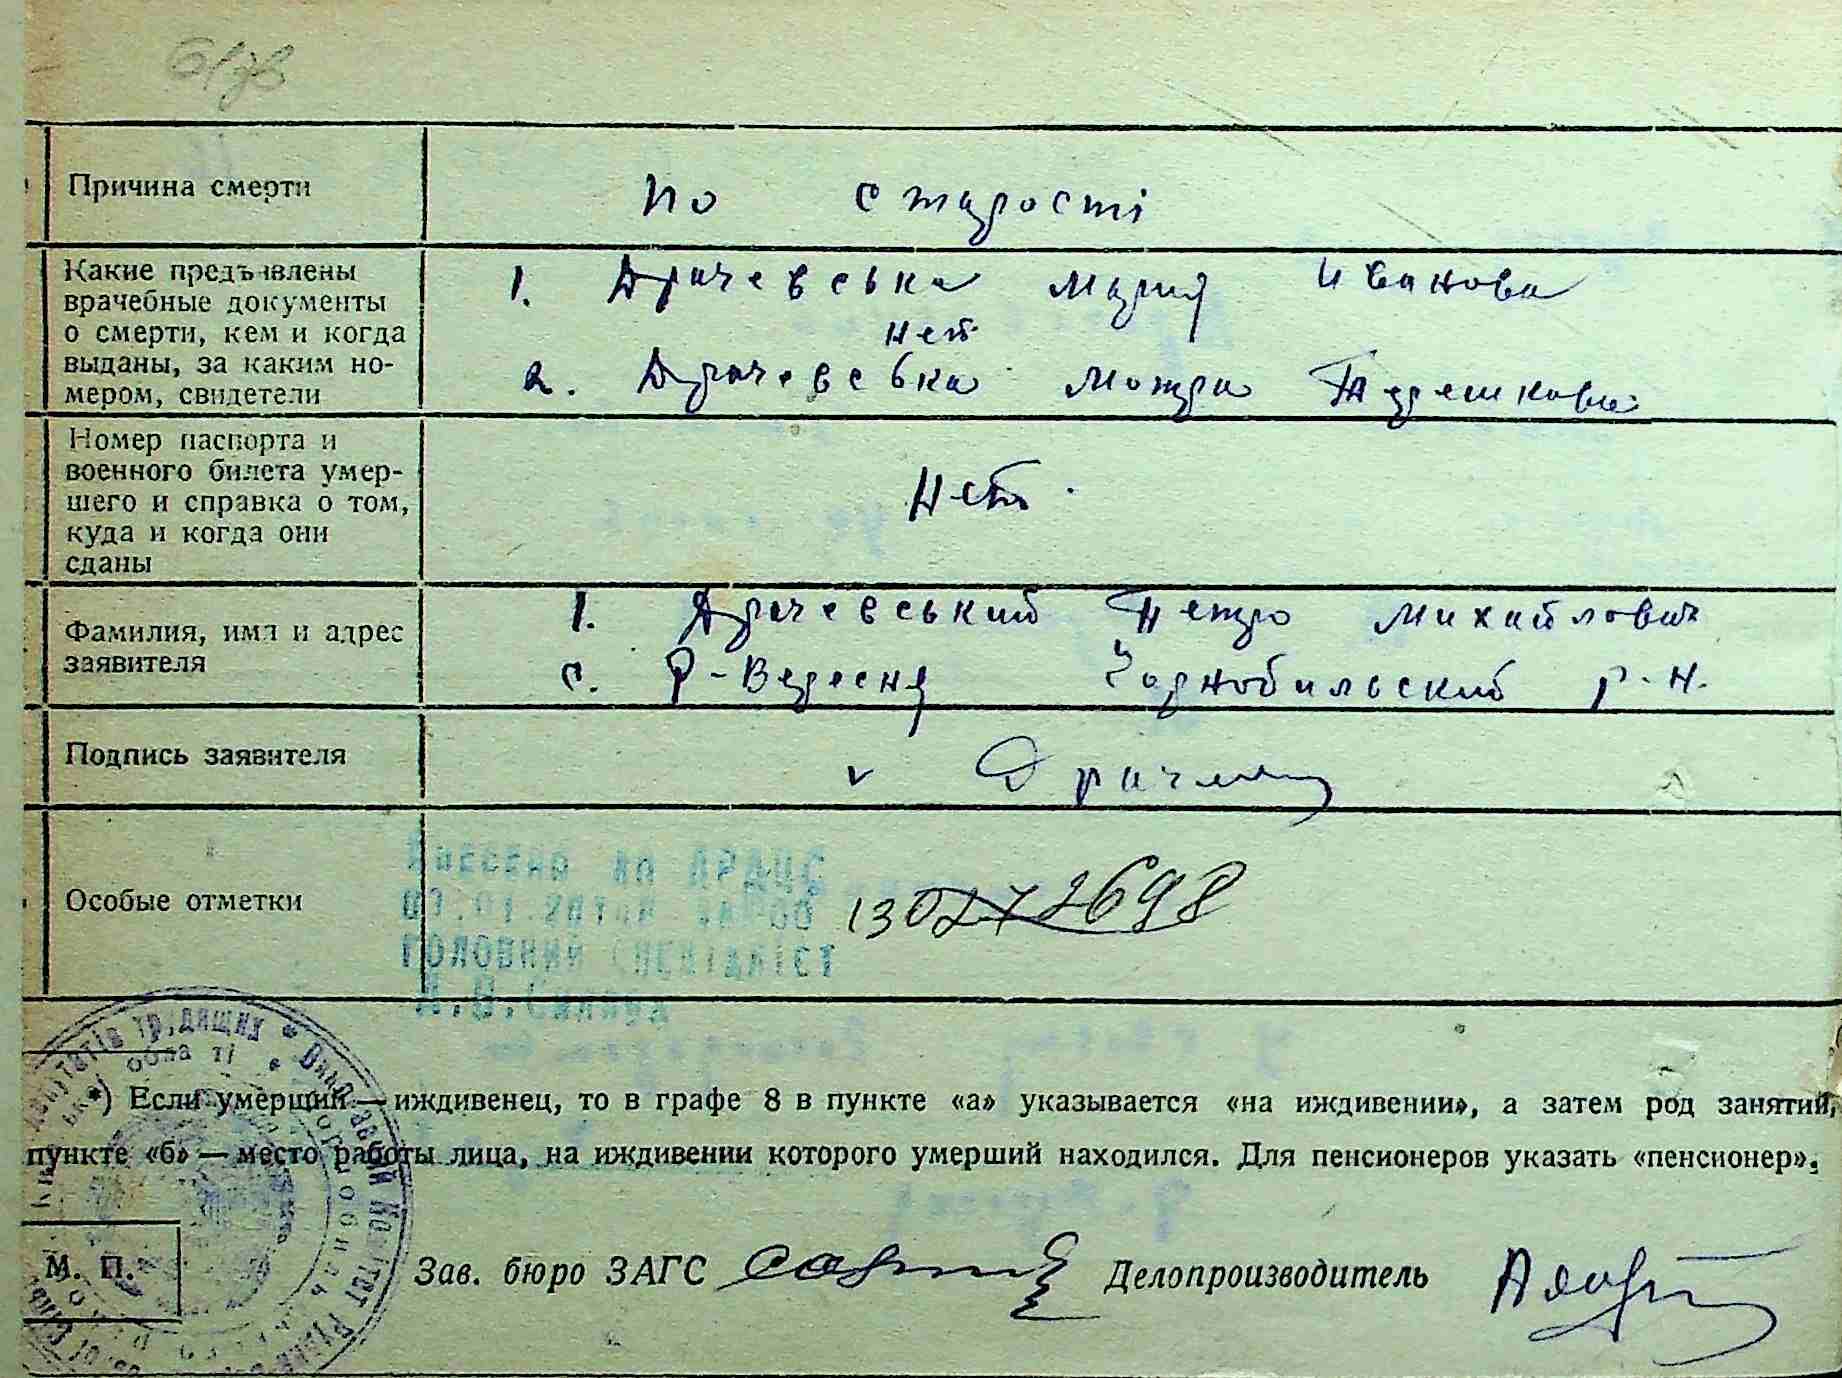 Причина смерти
по старості
Какие предъявлены
врачебные документы
о смерти, кем и когда
выданы, за каким но-
мером, свидетели
1. Драчевська Мария Иванова
нет
2. Драчевська Мотря
Номер паспорта и
военного билета умер-
шего и справка о том,
куда и когда они
сданы
Нет.
Фамилия, имя и адрес
заявителя
1. Драчевський Петро Михайлович
с. Р-Вересня Чорнобильский р-н.
Подпись заявителя
v
Особые отметки
ГОЛОВНИЙ СПЕЦІАЛІСТ
*) Если умерший — иждивенец, то в графе 8 в пункте «а» указывается «на иждивении», а затем род занятий,
пункте «б» — место работы лица, на иждивении которого умерший находился. Для пенсионеров указать «пенсионер».
депутатів трудящих * Виконавчий Комітет
області
М. П.
Зав. бюро ЗАГС
Делопроизводитель